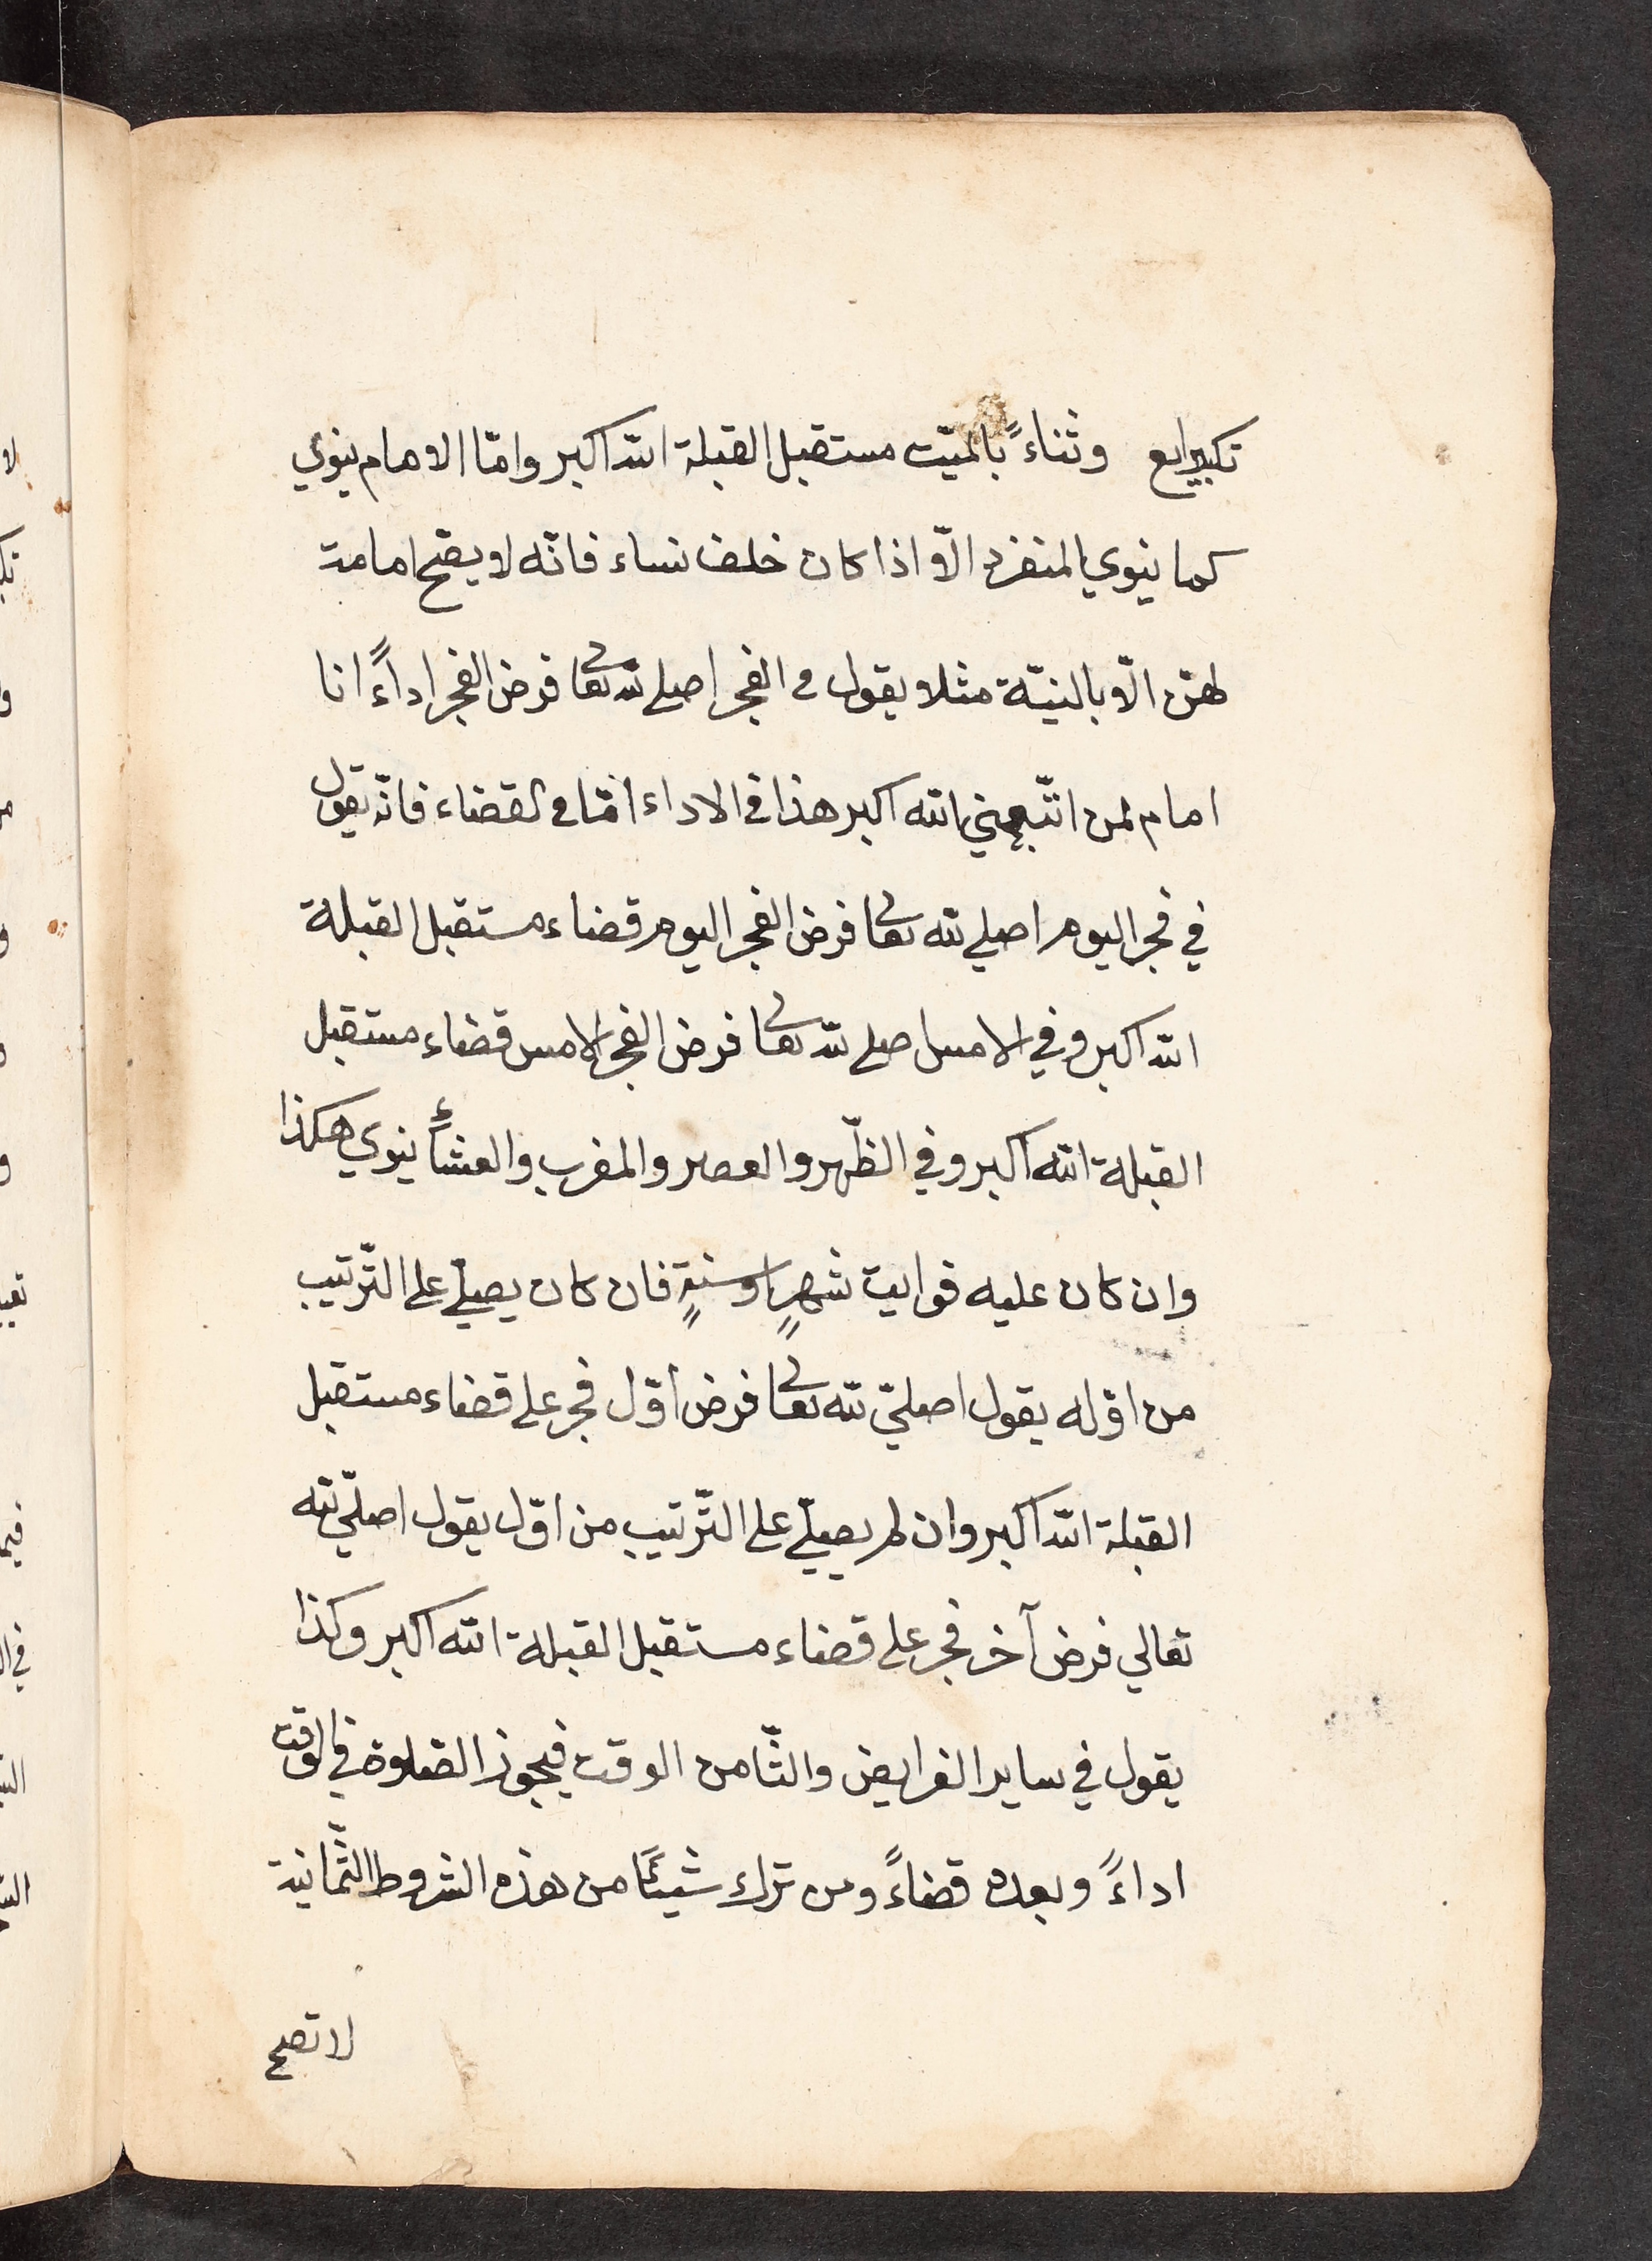 تكبير رابع وثناءً بالميّت مستقبل القبلة الله اكبر وامّا الامام ينوي
كما ينوي المنفرد الّا اذا كان خلف نساء فانّه لا يصّح امامة
لهنّ الّا بالنيّة مثلا يقول في الفجر اصلي لله تعالى فرض الفجر اداءً انا
امام لمن اتّبعني الله اكبر هذا في الاداء امّا في القضاء فانّه يقول
في فجر اليوم اصلي لله تعالى فرض الفجر اليوم قضاء مستقبل القبلة
الله اكبر وفي الامس اصلي لله تعالى فرض الفجر الامس قضاء مستقبل
القبلة الله اكبر وفي الظّهر والعصر والمغرب والعشاء ينوي هكذا
وان كان عليه فوايت شهرٍ او سنةٍ فان كان يصلّي على التّرتيب
من اوّله يقول اصلّي لله تعالى فرض اوّل فجر على قضاء مستقبل
القبلة الله اكبر وان لم يصلّي على التّرتيب من اوّل يقول اصلّي لله
تعالي فرض آخر فجر على قضاء مستقبل القبلة الله اكبر وكذا
يقول في ساير الفرايض والثّامن الوقت فيجوز الصّلوة في الوقت
اداءً وبعده قضاءً ومن ترك شيئًا من هذه الشروط الثّمانية
لا تصح